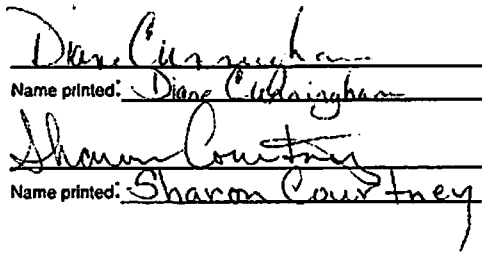 Diane Cunningham
Name printed: Diane Cunningham
Sharon Courtney
Name printed: Sharon Courtney